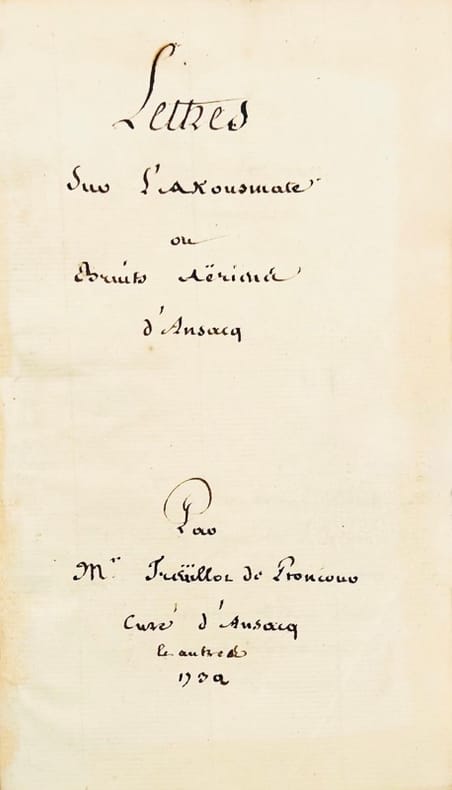 Lettres
Sur L'Akousmate
ou
Bruits Aëriens
d'Ansacq
Par
Mr. Treüillot de Ptoncour
Curé d'Ansacq
et autres
1732